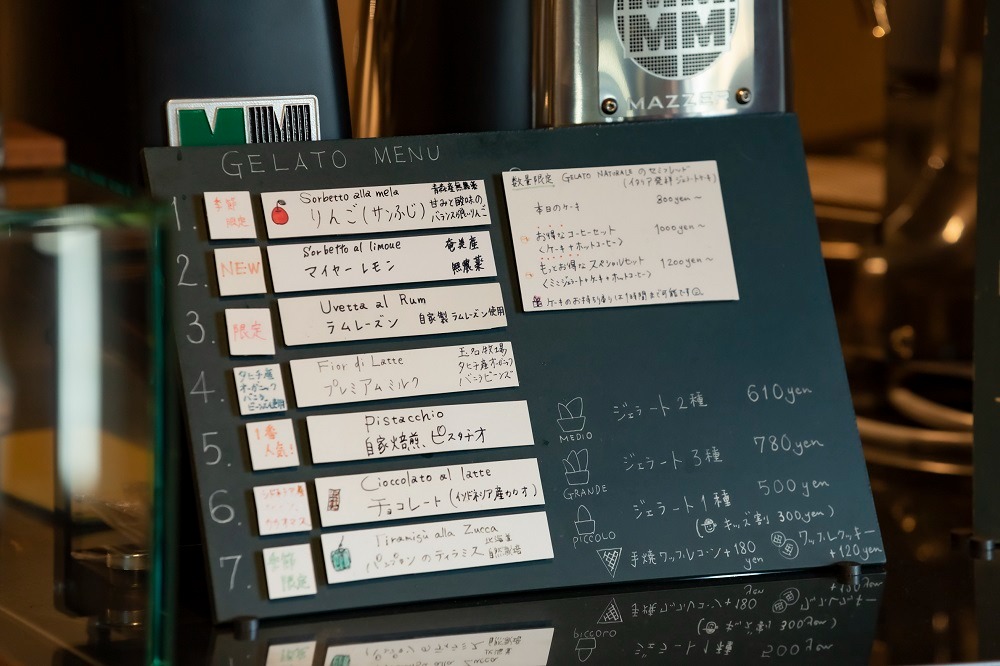 MAZZER
GELATO MENU
1.
季節
限定
Sorbetto alla mela
りんご(サンふじ)
青森産無農薬
甘みと酸味の
バランスの良いりんご
2.
NEW
Sorbetto al limoue
マイヤーレモン
奄美産
無農薬
3.
限定
Uvetta al Rum
ラムレーズン
自家製ラムレーズン使用
4.
タヒチ産
オーガニック
バニラ
ビーンズ使用
Fior di Latte
プレミアムミルク
玉名牧場
タヒチ産オーガニック
バニラビーンズ
5.
1番
人気!
Pistacchio
自家焙煎、ピスタチオ
6.
Cioccolato al latte
チョコレート(インドネシア産カカオ)
7.
季節
限定
Tiramisù alla Zucca
のティラミス
北海道
数量限定 GELATO NATURALE のセミフレッド
(イタリア発祥ジェラートケーキ)
本日のケーキ 800yen~
お得なコーヒーセット 1000yen~
<ケーキ+ホットコーヒー>
もっとお得なスペシャルセット 1200yen~
<ミニジェラート+ケーキ+ホットコーヒー>
ケーキのお持ち帰りは1時間まで可能です
MEDIO ジェラート2種 610yen
GRANDE ジェラート3種 780yen
PICCOLO ジェラート1種 500yen
(キッズ割 300yen)
手焼ワッフルコーン+180yen
ワッフルクッキー+120yen